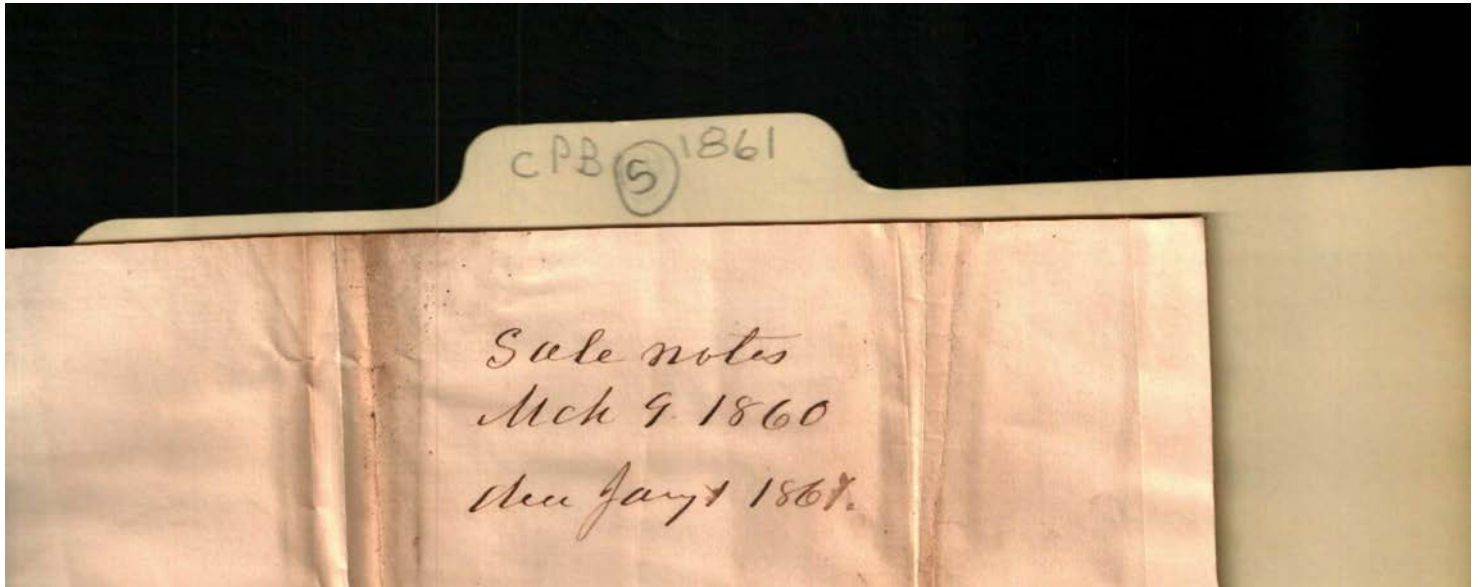 CPB 5 1861
Sale notes
Mch 9. 1860
due Jany 1 1861.